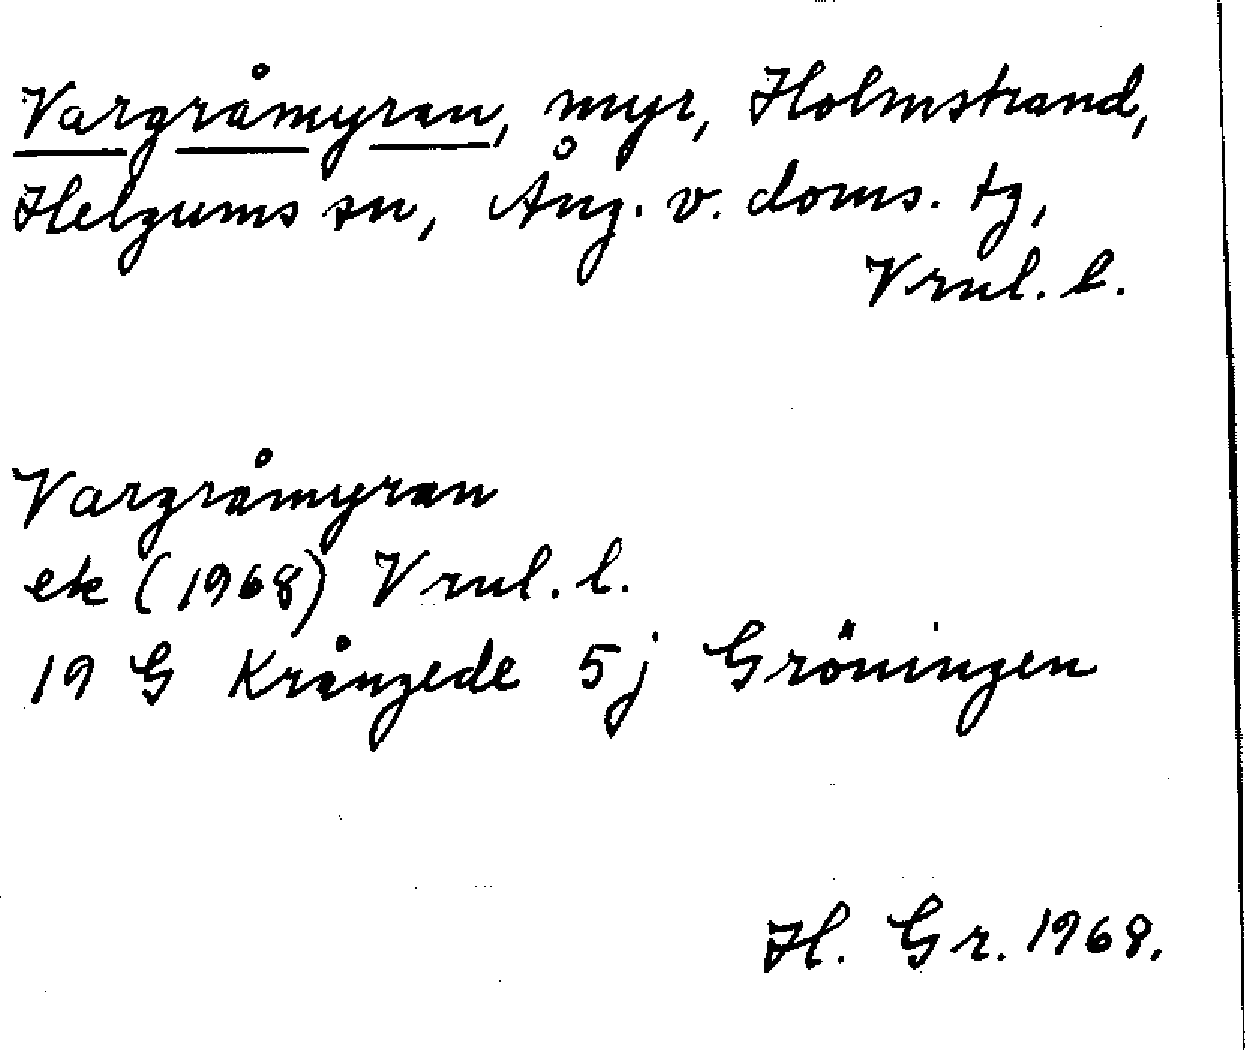 Vargråmyran, myr, Holmstrand,
Helgums sn, Ång. v. doms. tg,
Vrnl. l.
Vargråmyran
ek (1968) Vrnl. l.
19 G Krångede 5j Gröningen
H. Gr. 1968.